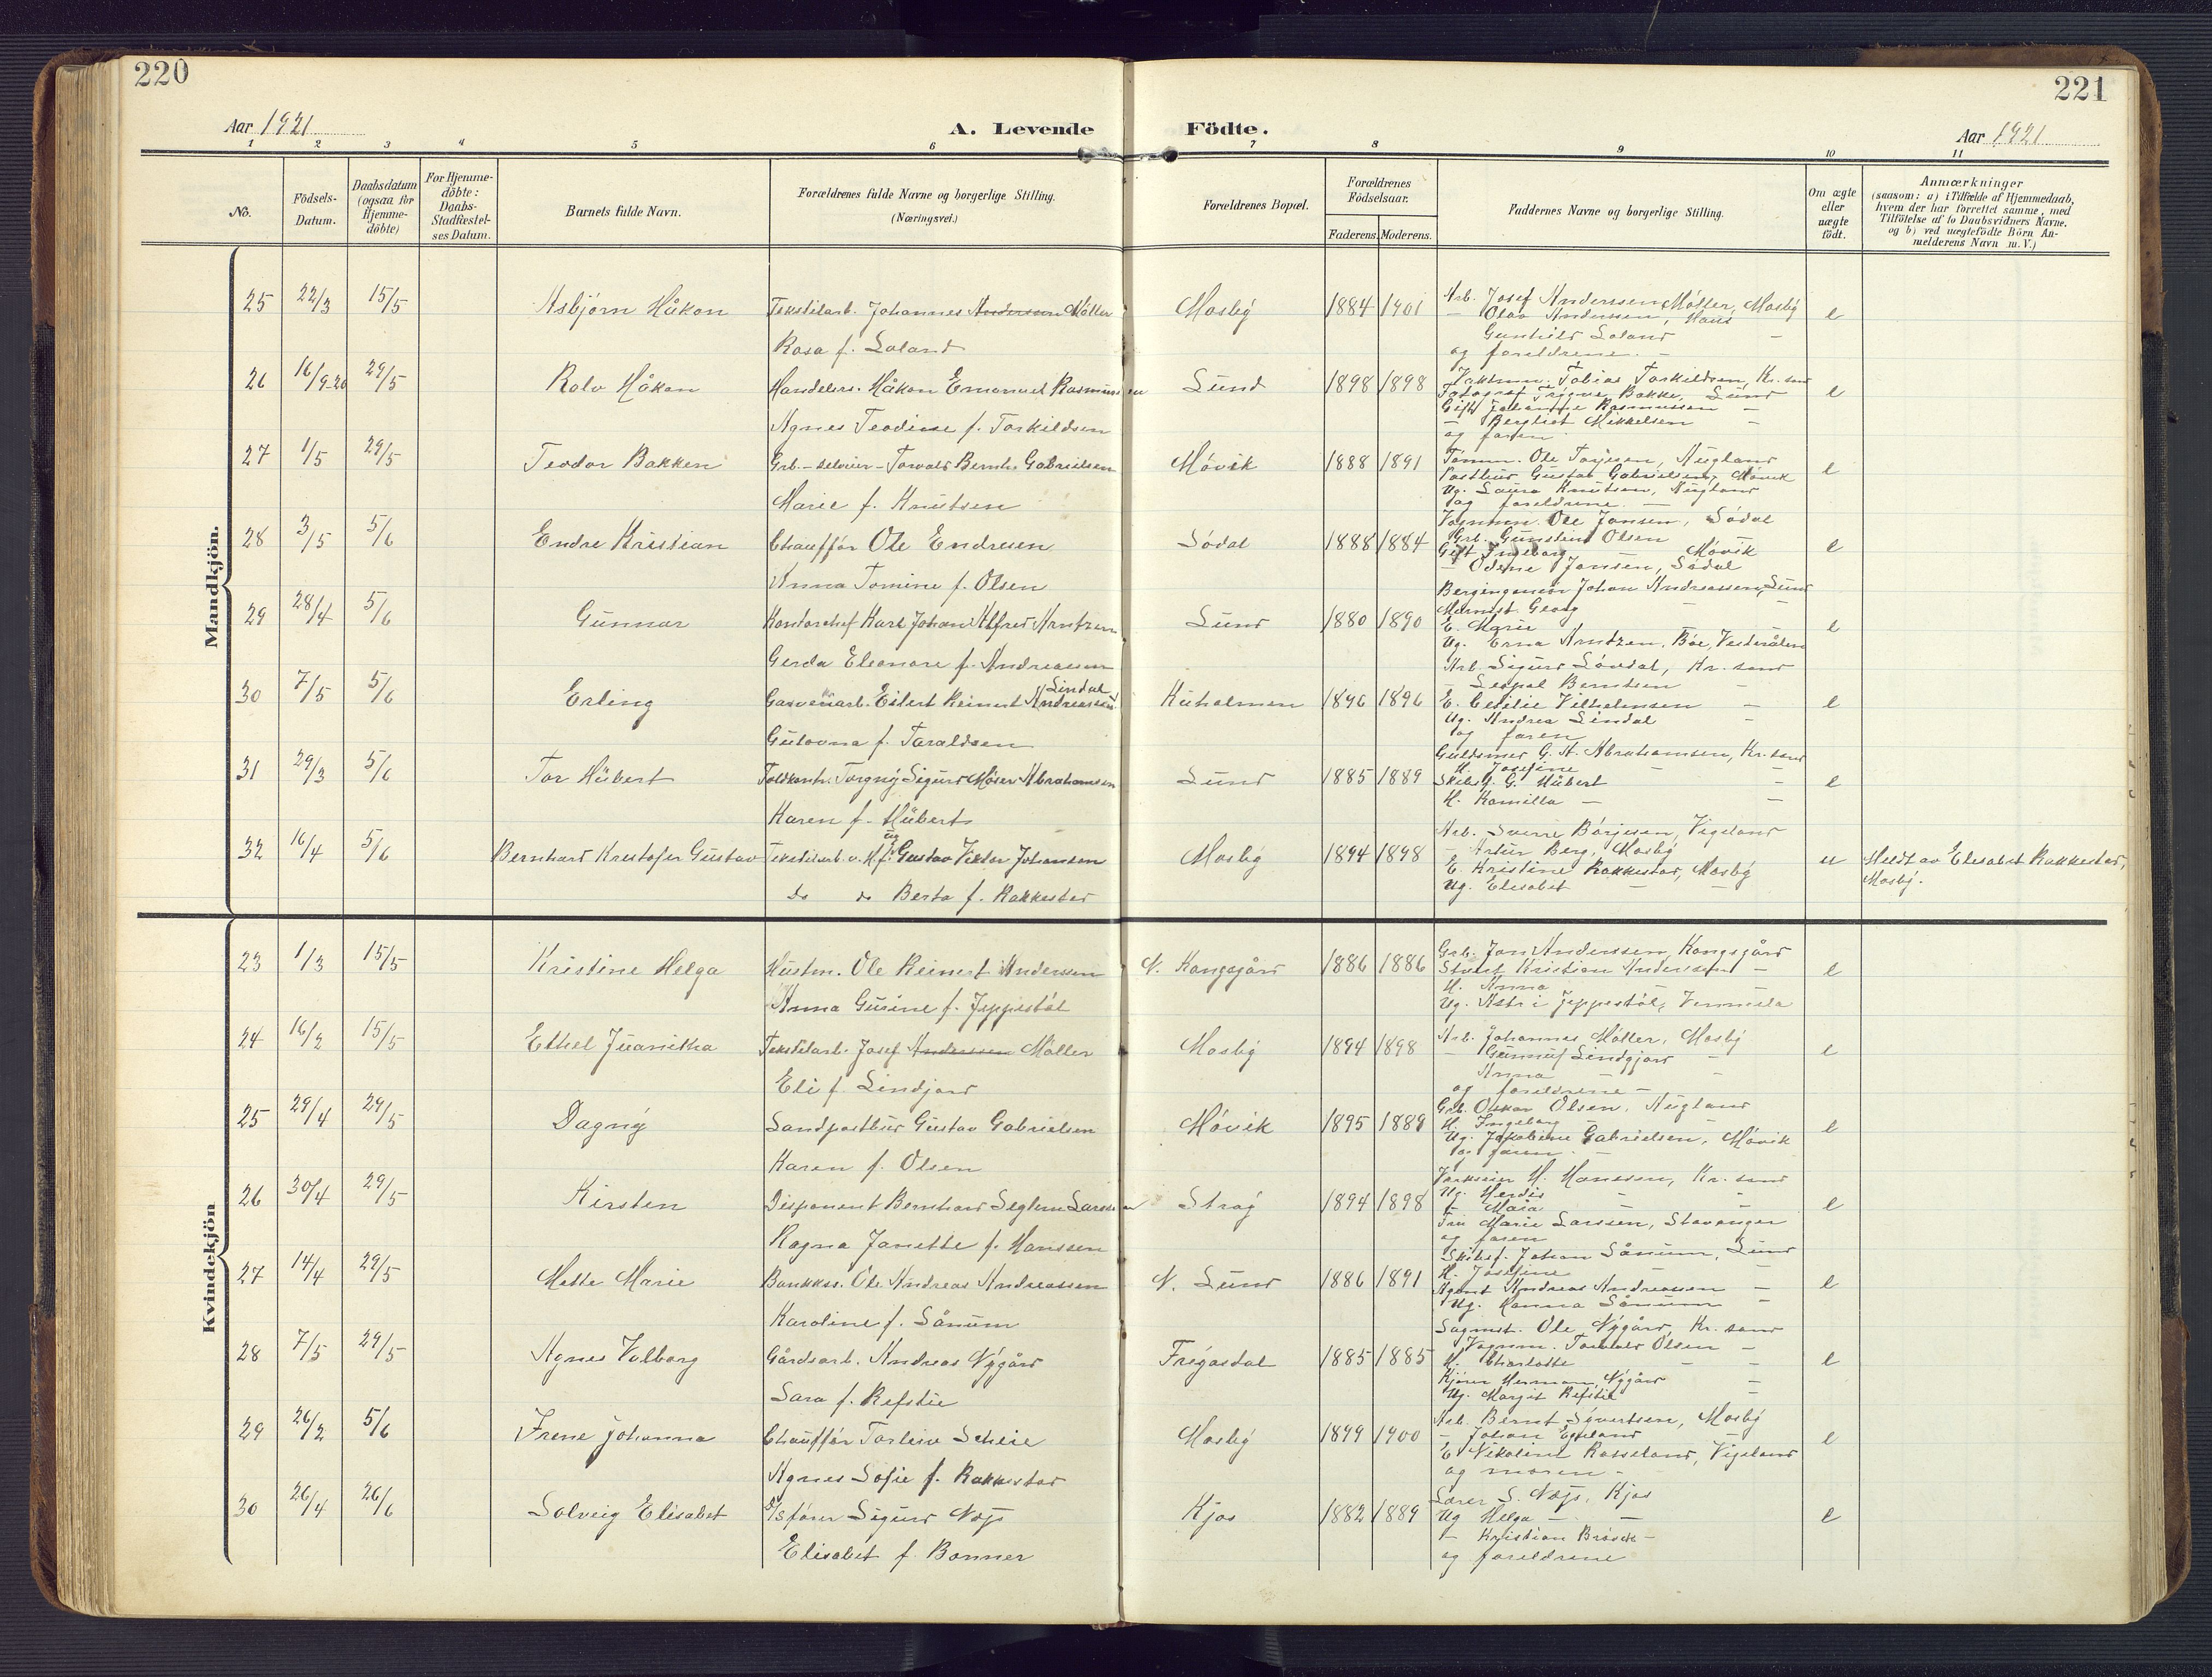 220
221
Aar 1921
A. Levende Födte.
Aar 1921
1 2 3 4 5 6 7 8 9 10 11
No.
Födsels-Datum.
Daabsdatum (ogsaa for Hjemme-döbte)
For Hjemme-döbte: Daabs-Stadfæstel-ses Datum.
Barnets fulde Navn.
Forældrenes fulde Navne og borgerlige Stilling.
(Næringsvei.)
Forældrenes Bopæl.
Forældrenes Födselsaar.
Faderens. Moderens.
Faddernes Navne og borgerlige Stilling.
Om ægte eller uægte födt.
Anmærkninger
(saasom: a) i Tilfælde af Hjemmedaab, hvem der har forrettet samme, med Tilföielse af to Daabsvidners Navne, og b) ved uægtefödte Börn An-melderens Navn m. V.)
Mandkjön.
25 22/3 15/5 Asbjørn Håkon Tekstilarb. Johannes Anderssen Møller Mosby 1884 1901 e
Rosa f. Loland
Arb. Josef Anderssen Møller, Mosby
- Olav Anderssen, Haus
Gunhild Loland -
og foreldrene. -
26 16/9-20 29/5 Rolv Håkon Handelsrs. Håkon Emanuel Rasmussen Lund 1898 1898 e
Agnes Teodine f. Torkildsen
Vaktmn. Tobias Torkildsen, Kr.sand
Fotograf Trygve Bakke, Lund
Gift Johanne Rasmussen -
- Bergliot Mikkelsen -
og faren
27 1/5 29/5 Teodor Bakken Grb.-selveier- Torvald Bernh. Gabrielsen Møvik 1888 1891 e
Marie f. Knutsen
Tømm. Ole Torjesen, Augland
Postbud Gustav Gabrielsen, Møvik
Ug. Laura Knutsen, Augland
og foreldrene. -
28 3/5 5/6 Endre Kristian Chauffør Ole Endresen Sødal 1888 1884 e
Anna Tomine f. Olsen
Vognmn. Ole Jansen, Sødal
Grb. Gunstein Olsen -
Gift Ingeborg Møvik
- Odine Jansen, Sødal
29 28/4 5/6 Gunnar Kontorchef Karl Johan Alfred Arntzen Lund 1880 1890 e
Gerda Eleonore f. Andreassen
Bergingeniør Johan Andreassen, Lund
Georg - -
E. Marie
Ug. Erna Arntzen, Bøe, Vesterålen
30 7/5 5/6 Erling Garveriarb. Eilert Reinert Andreassen Lindal Kuholmen 1896 1896 e
Gulovna f. Taraldsen
Arb. Sigurd Løvdal, Kr.sand
- Leopol Berntsen -
E. Cecilie Vilhelmsen -
Ug. Andrea Lindal -
og faren
31 29/3 5/6 Tor Hübert Toldkontr. Torgny Sigurd Møser Abrahamsen Lund 1885 1889 e
Karen f. Hübert
Guldsmed G. A. Abrahamsen, Kr.sand
H. Josefine - -
G. Hübert -
H. Kamilla - -
32 16/4 5/6 Bernhard Kristofer Gustav Tekstilarb. o. Ug. f. Gustav Viktor Johansen Mosby 1894 1898 u
do do Berta f. Rakkestad
Arb. Sverre Børjesen, Vigeland
- Artur Berg, Mosby
E. Kristine Rakkestad, Mosby
Ug. Elisabet - -
Meldt av Elisabet Rakkestad, Mosby.
Kvindekjön
23 1/3 15/5 Kristine Helga Hustm. Ole Reinert Anderssen N. Kongsgård 1886 1886 e
Anna Gurine f. Jeppestøl
Grb. Jon Anderssen Kongsgård
Stud. Kristian Anderssen -
H. Anna - -
Ug. Astri Jeppestøl, Vennesla
24 16/2 15/5 Ethel Juanitha Tekstilarb. Josef Anderssen Møller Mosby 1894 1898 e
Eli f. Lindjord
Arb. Johannes Møller, Mosby
- Gunnuf Lindgjord -
Anna - -
og foreldrene -
25 29/4 29/5 Dagny Landpostbud Gustav Gabrielsen Møvik 1895 1889 e
Karen f. Olsen
Grb. Oskar Olsen, Augland
H. Ingeborg -
Ug. Jakobine Gabrielsen, Møvik
og faren. -
26 30/4 29/5 Kirsten Disponent Bernhard Seglem Larssen Strøg 1894 1898 e
Ragna Janette f. Hanssen
Verkseier H. Hanssen, Kr.sand
Ug. Herdis - -
- Maia - -
Fru Marie Larssen, Stavanger
og faren
27 14/4 29/5 Mette Marie Bankkss. Ole Andreas Andreassen N. Lund 1886 1891 e
Karoline f. Sånum
Skibsf. Johan Sånum, Lund
H. Josefine - -
Agent Andreas Andreassen -
Ug. Hanna Sånum -
28 7/5 29/5 Agnes Valborg Gårdsarb. Andreas Nygård Frigasdal 1885 1885 e
Sara f. Refstie
Sagmst. Ole Nygård, Kr.sand
Vognm. Tarald Olsen -
H. Charlotte - -
Kjører Herman Nygård -
Ug. Margit Refstie -
29 26/2 5/6 Irene Johanna Chauffør Torleiv Scheie Mosby 1899 1900 e
Agnes Sofie f. Rakkestad
Arb. Bernt Syvertsen, Mosby
- Johan Egeland -
E. Nikoline Rosseland, Vigeland
og moren -
30 26/4 26/6 Solveig Elisabet D/sfører Sigurd Nøjs Kjos 1882 1889 e
Elisabet f. Bonner
Lærer S. Nøjs, Kjos
Ug Helga - -
- Kristian Brøvik -
og foreldrene